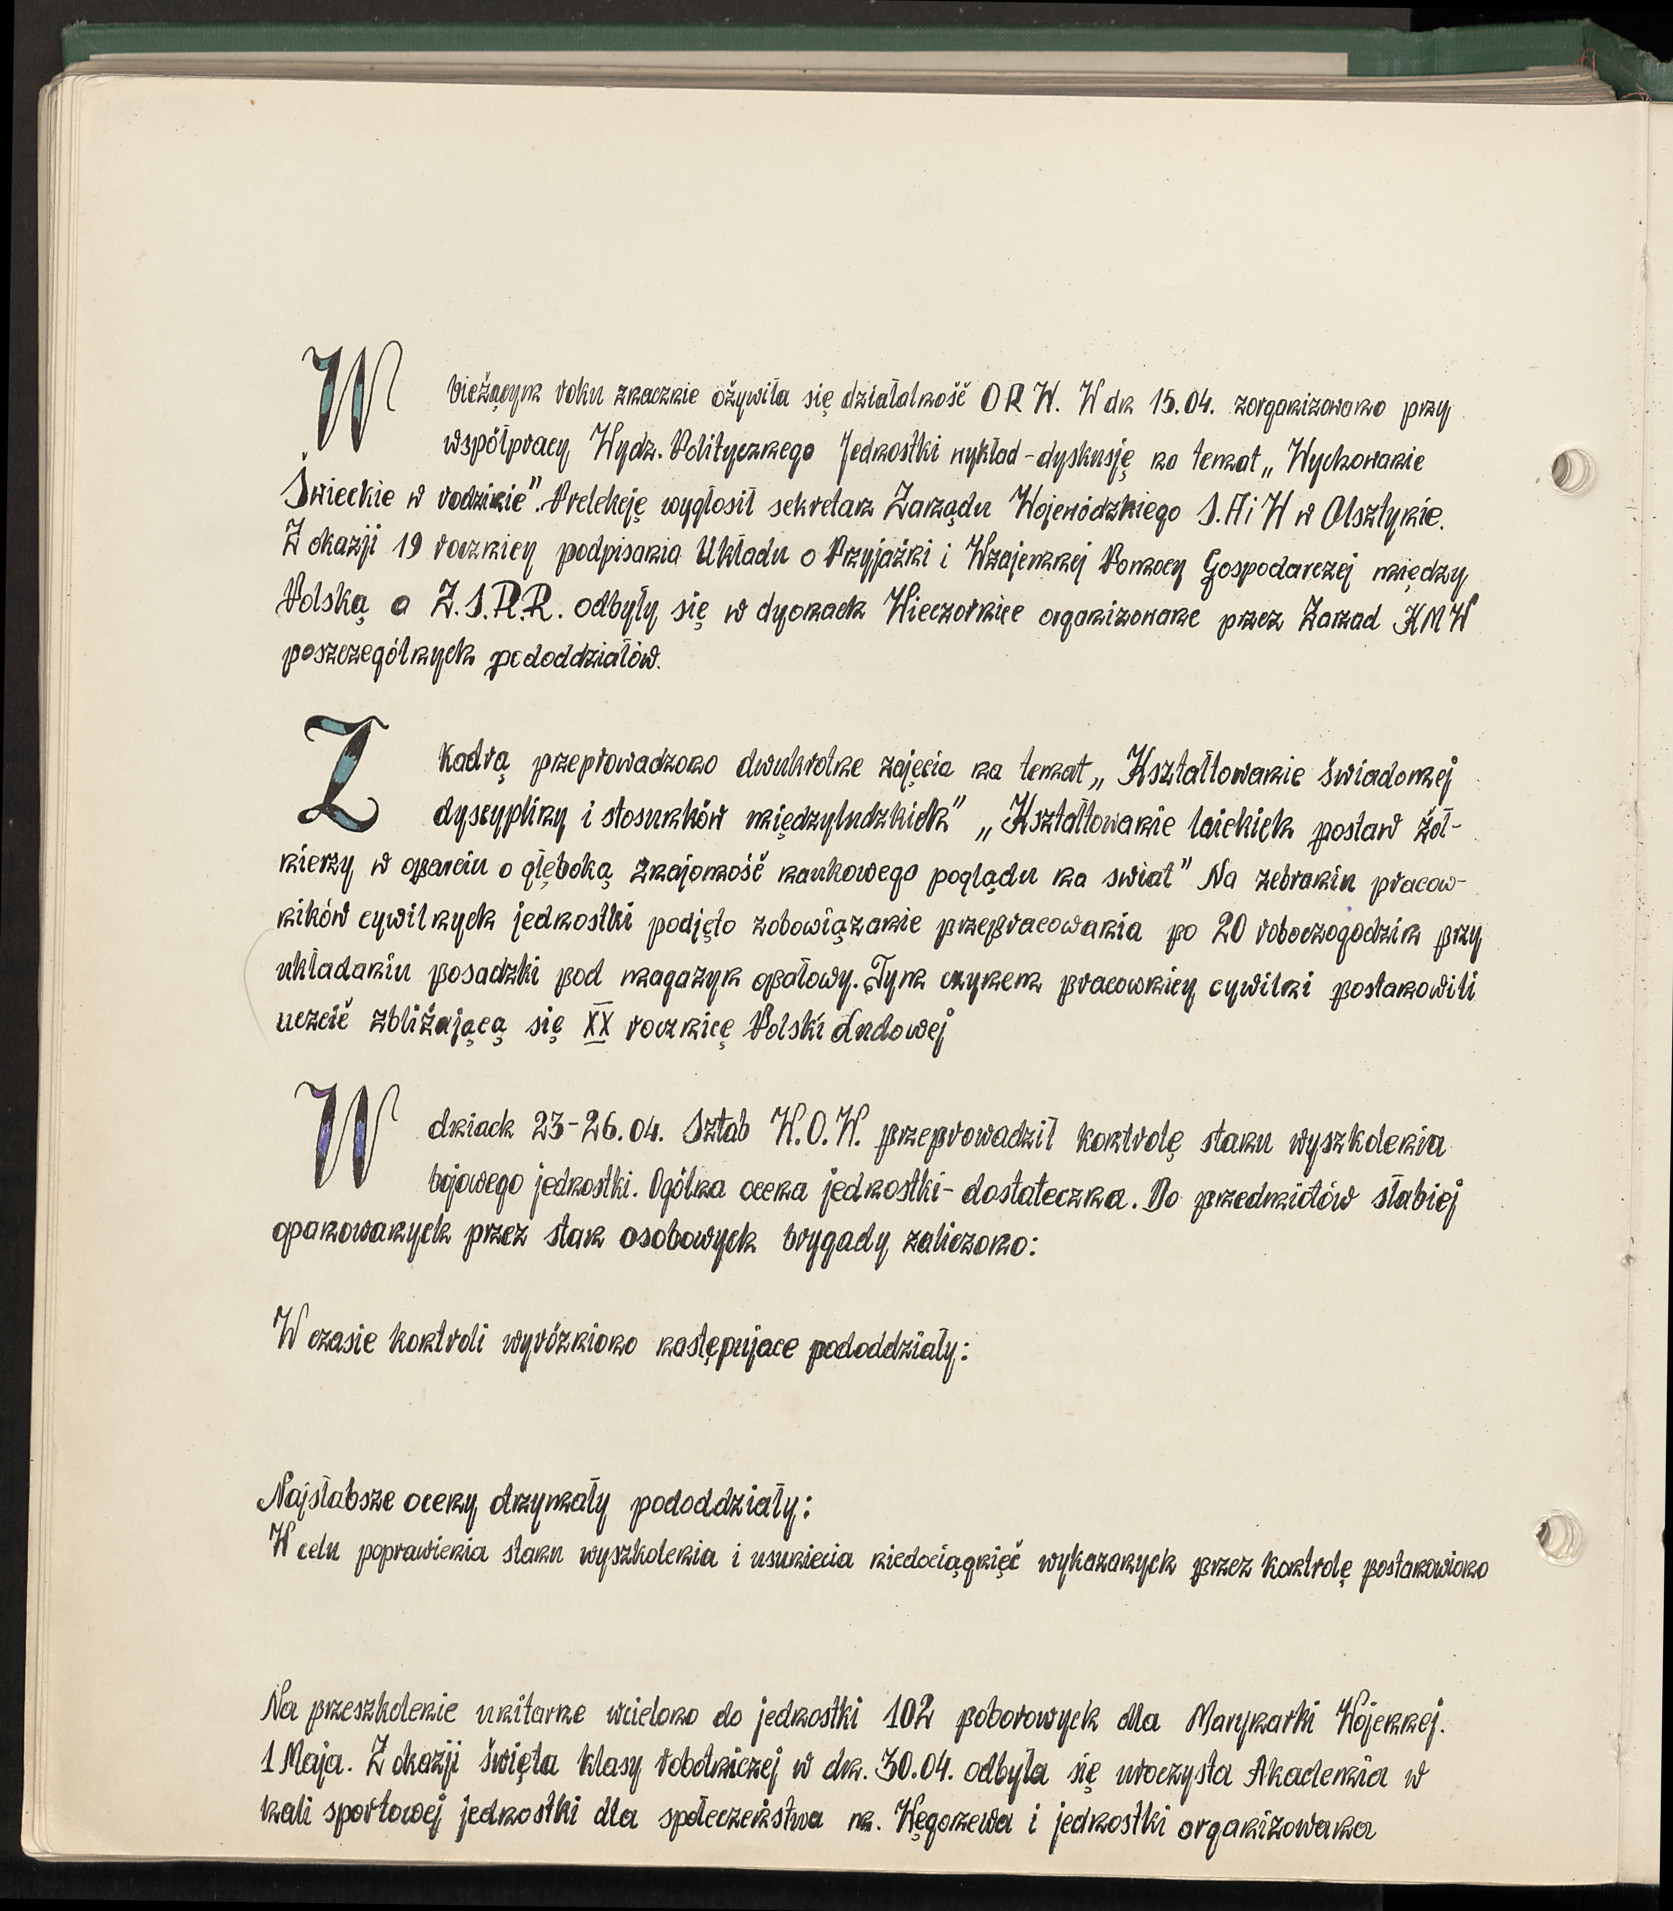 W bieżącym roku znacznie ożywiła się działalność O R W. W dn 15.04. zorganizowano przy
współpracy Wydz. Politycznego Jednostki wykład-dyskusję na temat „Wychowanie
Świeckie w rodzinie”. Prelekcję wygłosił sekretarz Zarządu Wojewódzkiego S.A i W w Olsztynie.
Z okazji 19 rocznicy podpisania Układu o Przyjaźni i Wzajemnej Pomocy Gospodarczej między
Polską a Z.S.R.R. odbyły się w dyonach Wieczornice organizowane przez Zarzad KMW
poszczególnych pododdziałów.
Z kadrą przeprowadzono dwukrotne zajęcia na temat „Kształtowanie świadomej
dyscypliny i stosunków międzyludzkich” „Kształtowanie laickich postaw żoł-
nierzy w oparciu o głęboką znajomość naukowego poglądu na swiat” Na zebraniu pracow-
ników cywilnych jednostki podjęto zobowiązanie przepracowania po 20 roboczogodzin przy
układaniu posadzki pod magazyn opałowy. Tym czynem pracownicy cywilni postanowili
uczcić zbliżającą się XX rocznicę Polski Ludowej
W dniach 23-26.04. Sztab W.O.W. przeprowadził kontrolę stanu wyszkolenia
bojowego jednostki. Ogólna ocena jednostki- dostateczna. Do przedmiotów słabiej
opanowanych przez stan osobowych brygady zaliczono:
W czasie kontroli wyróżniono następujace pododdziały:
Najsłabsze oceny otrzymały pododdziały:
W celu poprawienia stanu wyszkolenia i usuniecia niedociągnięć wykazanych przez kontrolę postanowiono
Na przeszkolenie unitarne wcielono do jednostki 102 poborowych dla Marynarki Wojennej.
1 Maja. Z okazji święta klasy robotniczej w dn. 30.04. odbyła się uroczysta Akademia w
hali sportowej jednostki dla społeczeństwa m. Węgorzewa i jednostki organizowana